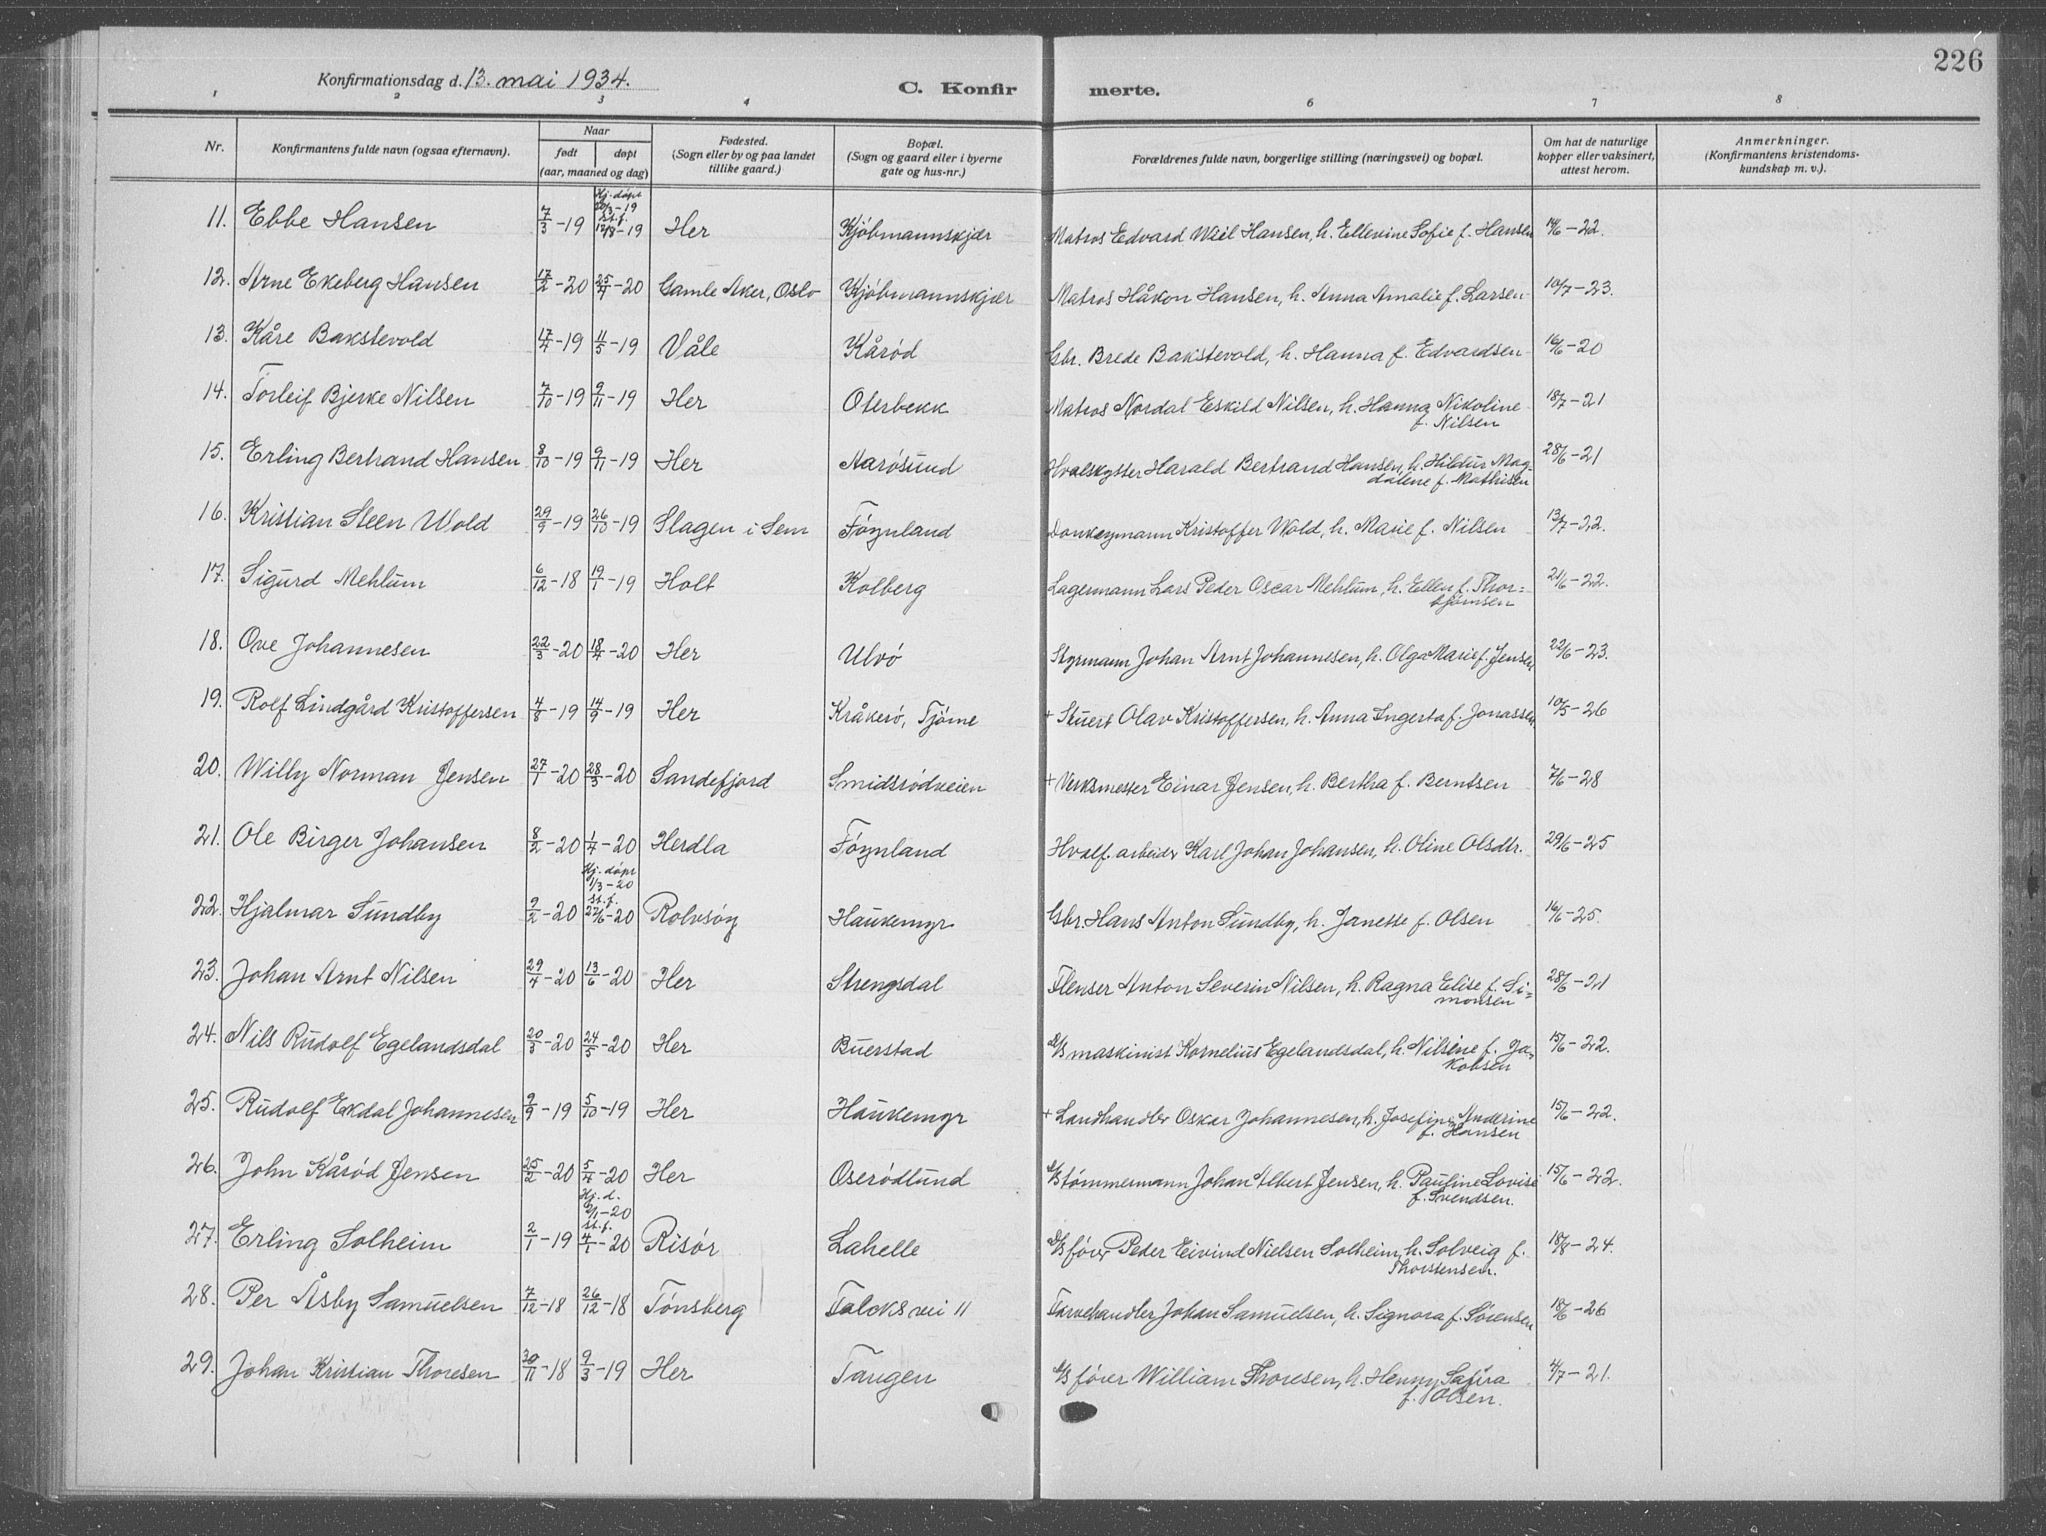 226
Konfirmationsdag d. 13. mai 1934.
C. Konfirmerte.
1 2 3 4 6 7 8
Nr. | Konfirmantens fulde navn (ogsaa efternavn). | Naar født døpt (aar, maaned og dag) | Fødested. (Sogn eller by og paa landet tillike gaard.) | Bopæl. (Sogn og gaard eller i byerne gate og hus-nr.) | Forældrenes fulde navn, borgerlige stilling (næringsvei) og bopæl. | Om hat de naturlige kopper eller vaksinert, attest herom. | Anmerkninger. (Konfirmantens kristendomskundskap m. v.).
11. Ebbe Hansen 7/3-19 Hj. døpt 20/3-19 st.f. 12/8-19 Her Kjøbmannskjær Matros Edvard Wiil Hansen, h. Ellevine Sofie f. Hansen 14/6-22.
12. Arne Ekeberg Hansen 17/2-20 25/4-20 Gamle Aker, Oslo Kjøbmannskjær Matros Håkon Hansen, h. Anna Amalie f. Larsen 10/7-23.
13. Kåre Bakstevold 17/4-19 11/5-19 Våle Kårød Gbr. Brede Bakstevold, h. Hanna f. Edvardsen 16/6-20
14. Torleif Bjerke Nilsen 7/10-19 9/11-19 Her Oterbekk Matros Nordal Eskild Nilsen, h. Hanna Nikoline f. Nilsen 18/7-21
15. Erling Bertrand Hansen 8/10-19 9/11-19 Her Aarøsund Hvalskytter Harald Bertrand Hansen, h. Hildur Magdalene f. Mathisen 28/6-21
16. Kristian Steen Wold 29/9-19 26/10-19 Slagen i Sem Føynland Donkeymann Kristoffer Wold, h. Marie f. Nilsen 13/7-22.
17. Sigurd Mehlum 6/12-18 19/1-19 Holt Kolberg Lagermann Lars Peder Oscar Mehlum, h. Ellen f. Thorbjørnsen 21/6-22.
18. Ove Johannesen 22/3-20 18/4-20 Her Ulvø Styrmann Johan Arnt Johannesen, h. Olga Marie f. Jensen 22/6-23.
19. Rolf Lindgård Kristoffersen 4/8-19 14/9-19 Her Kråkerø, Tjøme + Stuert Olav Kristoffersen, h. Anna Ingerta f. Jonassen 10/5-26
20. Willy Norman Jensen 27/1-20 28/3-20 Sandefjord Smidsrødveien + Verksmester Einar Jensen, h. Bertha f. Berntsen 7/6-28
21. Ole Birger Johansen 8/2-20 1/4-20 Herdla Føynland Hvalf. arbeider Karl Johan Johansen, h. Oline Olsdtr. 29/6-25
22. Hjalmar Sundby 9/2-20 Hj. døpt 1/3-20 st.f. 27/6-20 Rolvsøy Haukemyr Gbr. Hans Anton Sundby, h. Janette f. Olsen 16/6-25.
23. Johan Arnt Nilsen 29/4-20 13/6-20 Her Strengsdal Flenser Anton Severin Nilsen, h. Ragna Elise f. Simonsen 28/6-21
24. Nils Rudolf Egelandsdal 20/3-20 24/5-20 Her Buerstad d/s maskinist Kornelius Egelandsdal, h. Nilsine f. Jakobsen 15/6-22.
25. Rudolf Ekdal Johannesen 9/9-19 5/10-19 Her Haukemyr + Landhandler Oskar Johannesen, h. Josefine Andrine f. Hansen 15/6-22.
26. John Kårød Jensen 25/2-20 5/4-20 Her Oserødlund d/s tømmermann Johan Albert Jensen, h. Pauline Lovise f. Svendsen. 15/6-22.
27. Erling Solheim 2/1-19 Hj. d. 2/1-20 st.f. 4/1-20 Risør Lahelle d/s fører Peder Eivind Nielsen Solheim, h. Solveig f. Thorstensen. 18/8-24.
28. Per Åsby Samuelsen 7/12-18 26/12-18 Tønsberg Falcks vei 11 Farvehandler Johan Samuelsen, h. Signora f. Sørensen 18/6-26
29. Johan Kristian Thoresen 30/11-18 9/3-19 Her Tangen d/s fører William Thoresen, h. Henny Safira f. Olsen. 4/7-21.